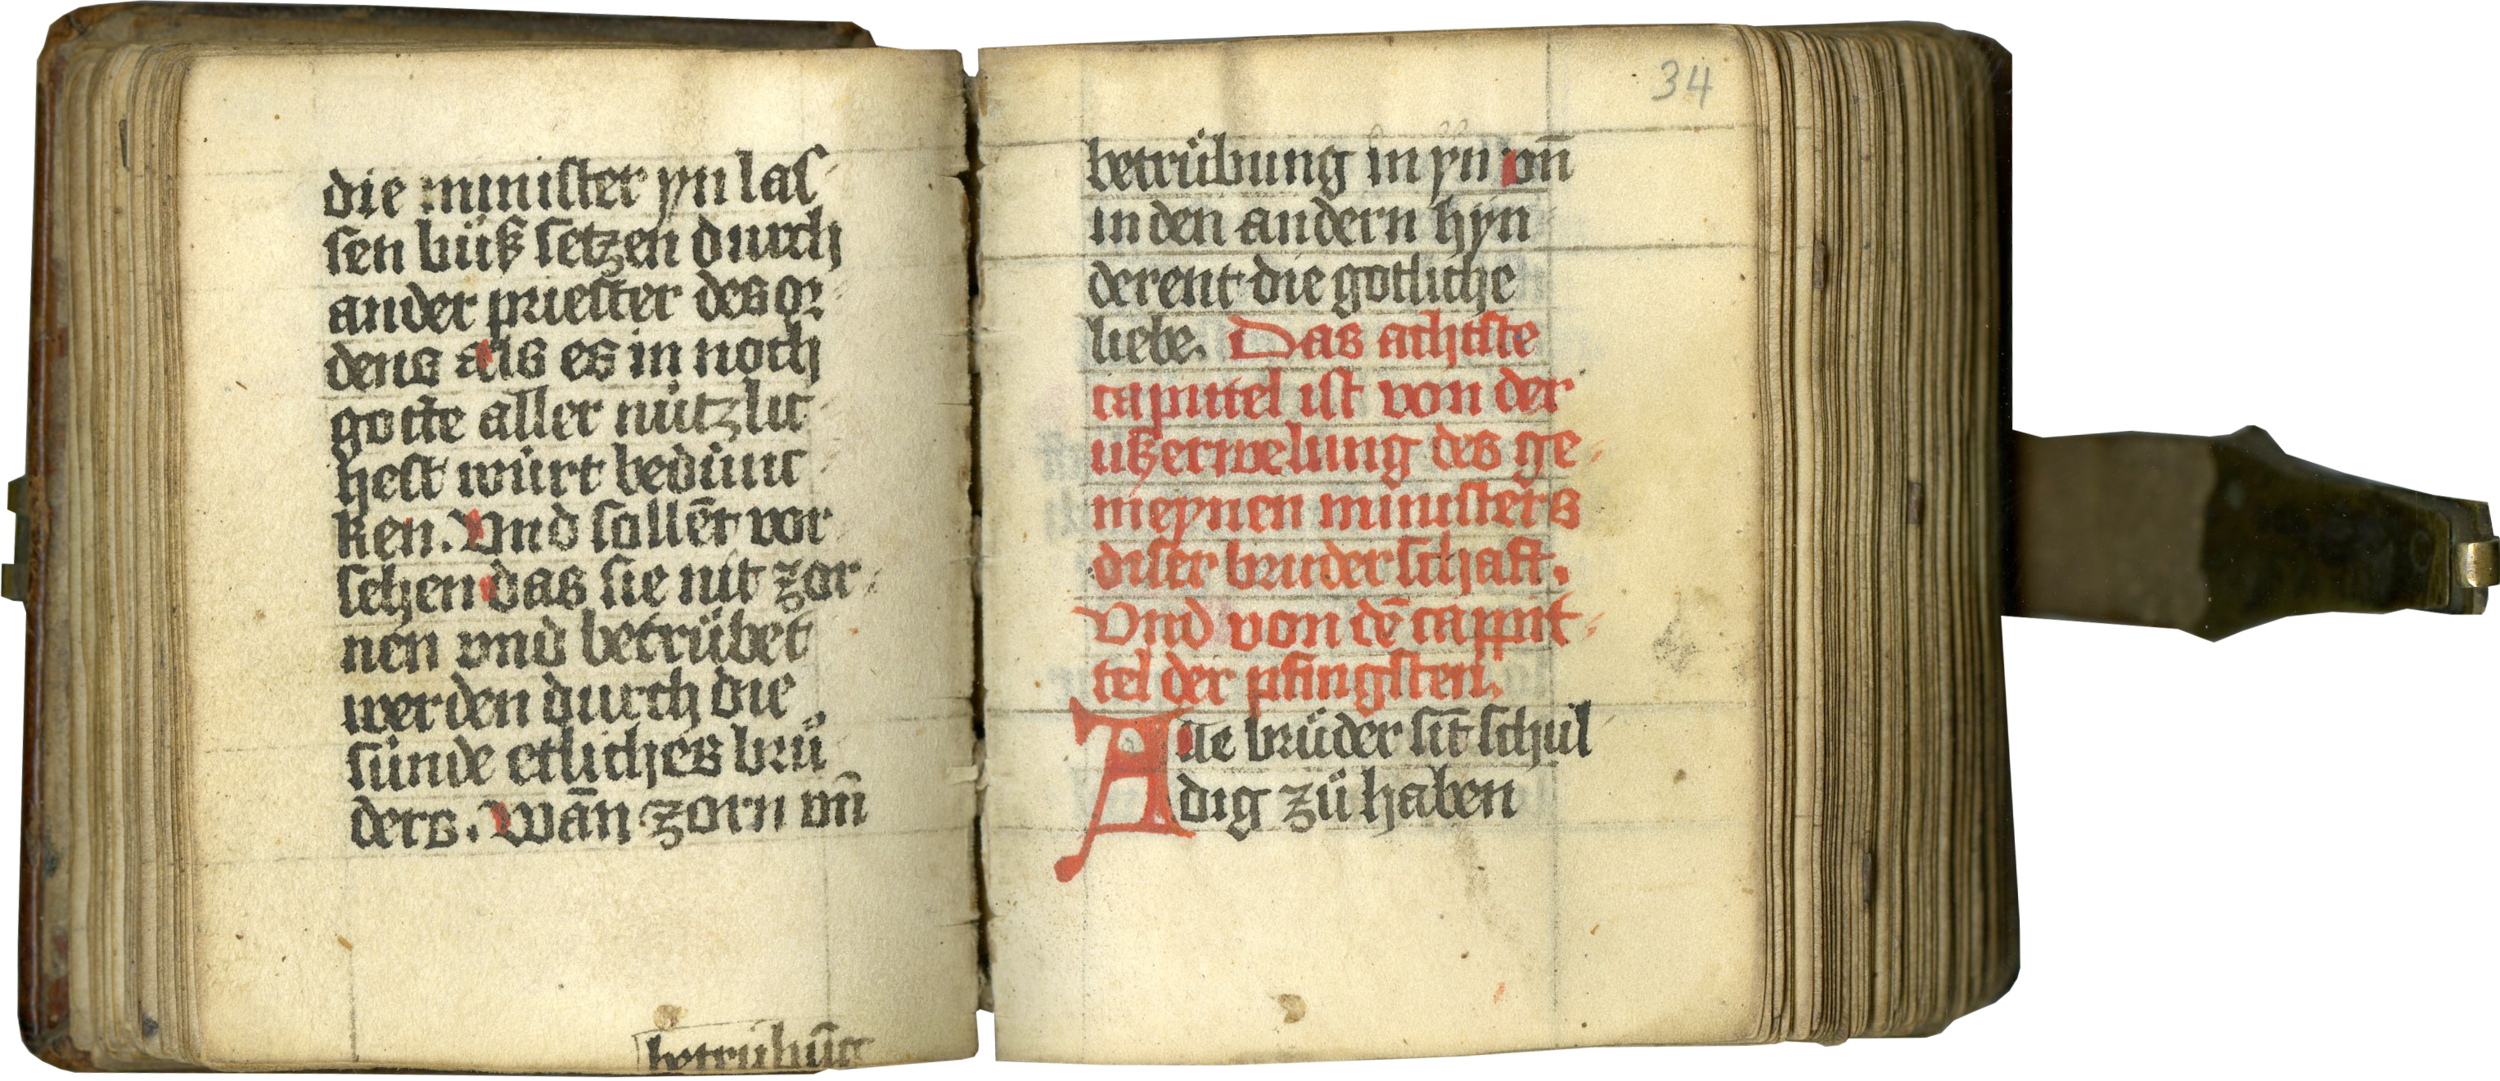 die minister yn las
sen büß setzen durch
ander priester des or
dens als es in noch
gotte aller nützlic
hest würt bedunc
ken. Vnd sollēt vor
sehen das sie nit zor
nen vnd betrübet
werden durch die
sünde etliches brů
ders. Wān zorn vn̄
betrübūg
34
betrübung in yn vn̄
in den andern hyn
derent die gotliche
liebe. Das achtste
capittel ist von der
ußerwelung des ge
meynen ministers
diser bruderschaft.
Vnd von dē cappit
tel der pfingsten.
Alle brüder sīt schul
dig zů haben